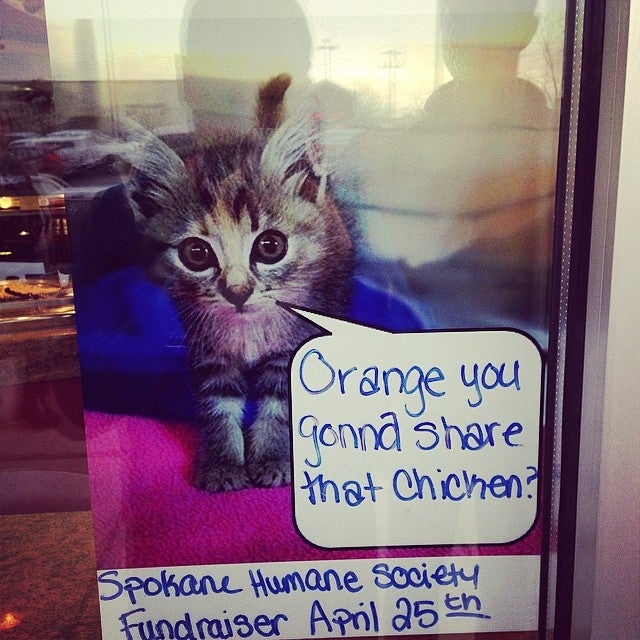 Orange you
gonna share
that Chicken?
Spokane Humane Society
Fundraiser April 25th